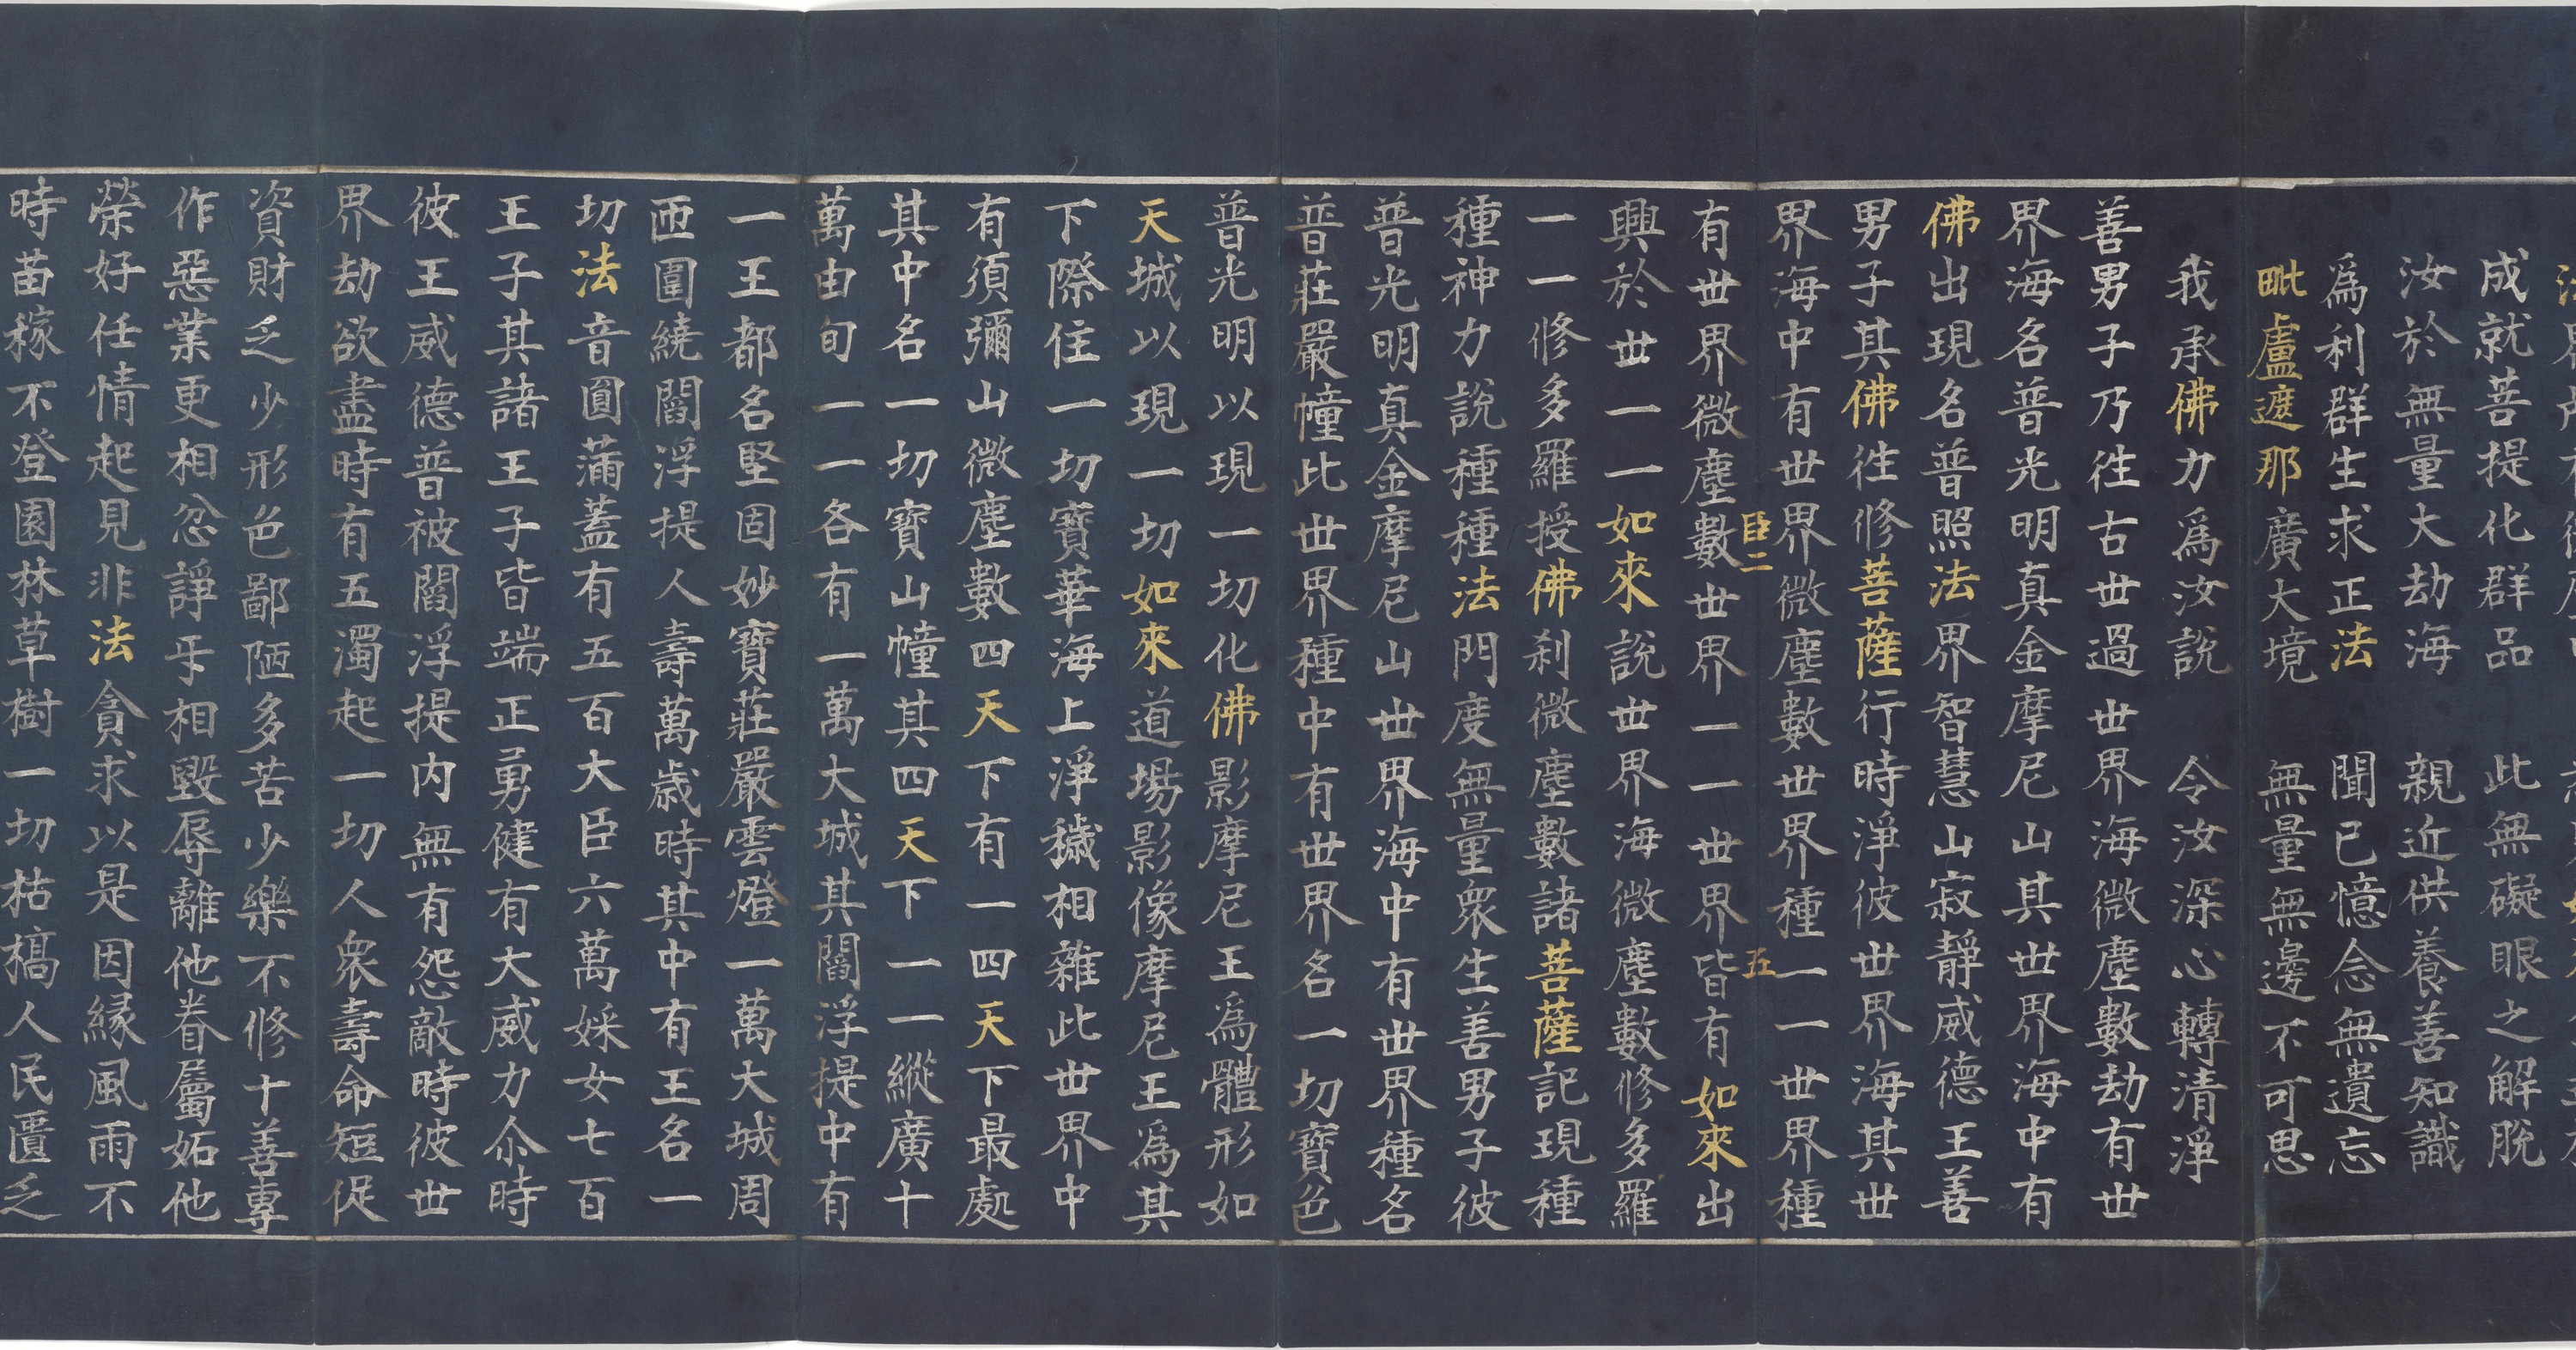 成就菩提化群品　此無礙眼之解脫
汝於無量大劫海　親近供養善知識
爲利群生求正法　聞已憶念無遺忘
毗盧遮那廣大境　無量無邊不可思
我承佛力爲汝說　令汝深心轉清淨
善男子乃往古世過世界海微塵數劫有世
界海名普光明真金摩尼山其世界海中有
佛出現名普照法界智慧山寂靜威德王善
男子其佛往修菩薩行時淨彼世界海其世
界海中有世界微塵數世界種一一世界種
臣二　五
有世界微塵數世界一一世界皆有如來出
興於世一一如來說世界海微塵數修多羅
一一修多羅授佛刹微塵數諸菩薩記現種
種神力說種種法門度無量眾生善男子彼
普光明真金摩尼山世界海中有世界種名
普莊嚴幢此世界種中有世界名一切寶色
普光明以現一切化佛影摩尼王爲體形如
天城以現一切如來道場影像摩尼王爲其
下際住一切寶華海上淨穢相雜此世界中
有須彌山微塵數四天下有一四天下最處
其中名一切寶山幢其四天下一一縱廣十
萬由旬一一各有一萬大城其閻浮提中有
一王都名堅固妙寶莊嚴雲燈一萬大城周
匝圍繞閻浮提人壽萬歲時其中有王名一
切法音圓蒲蓋有五百大臣六萬婇女七百
王子其諸王子皆端正勇健有大威力尒時
彼王威德普被閻浮提内無有怨敵時彼世
界劫欲盡時有五濁起一切人眾壽命短促
資財乏少形色鄙陋多苦少樂不修十善專
作惡業更相忿諍㸦相毀辱離他眷屬妬他
榮好任情起見非法貪求以是因緣風雨不
時苗稼不登園林草樹一切枯槁人民匱乏